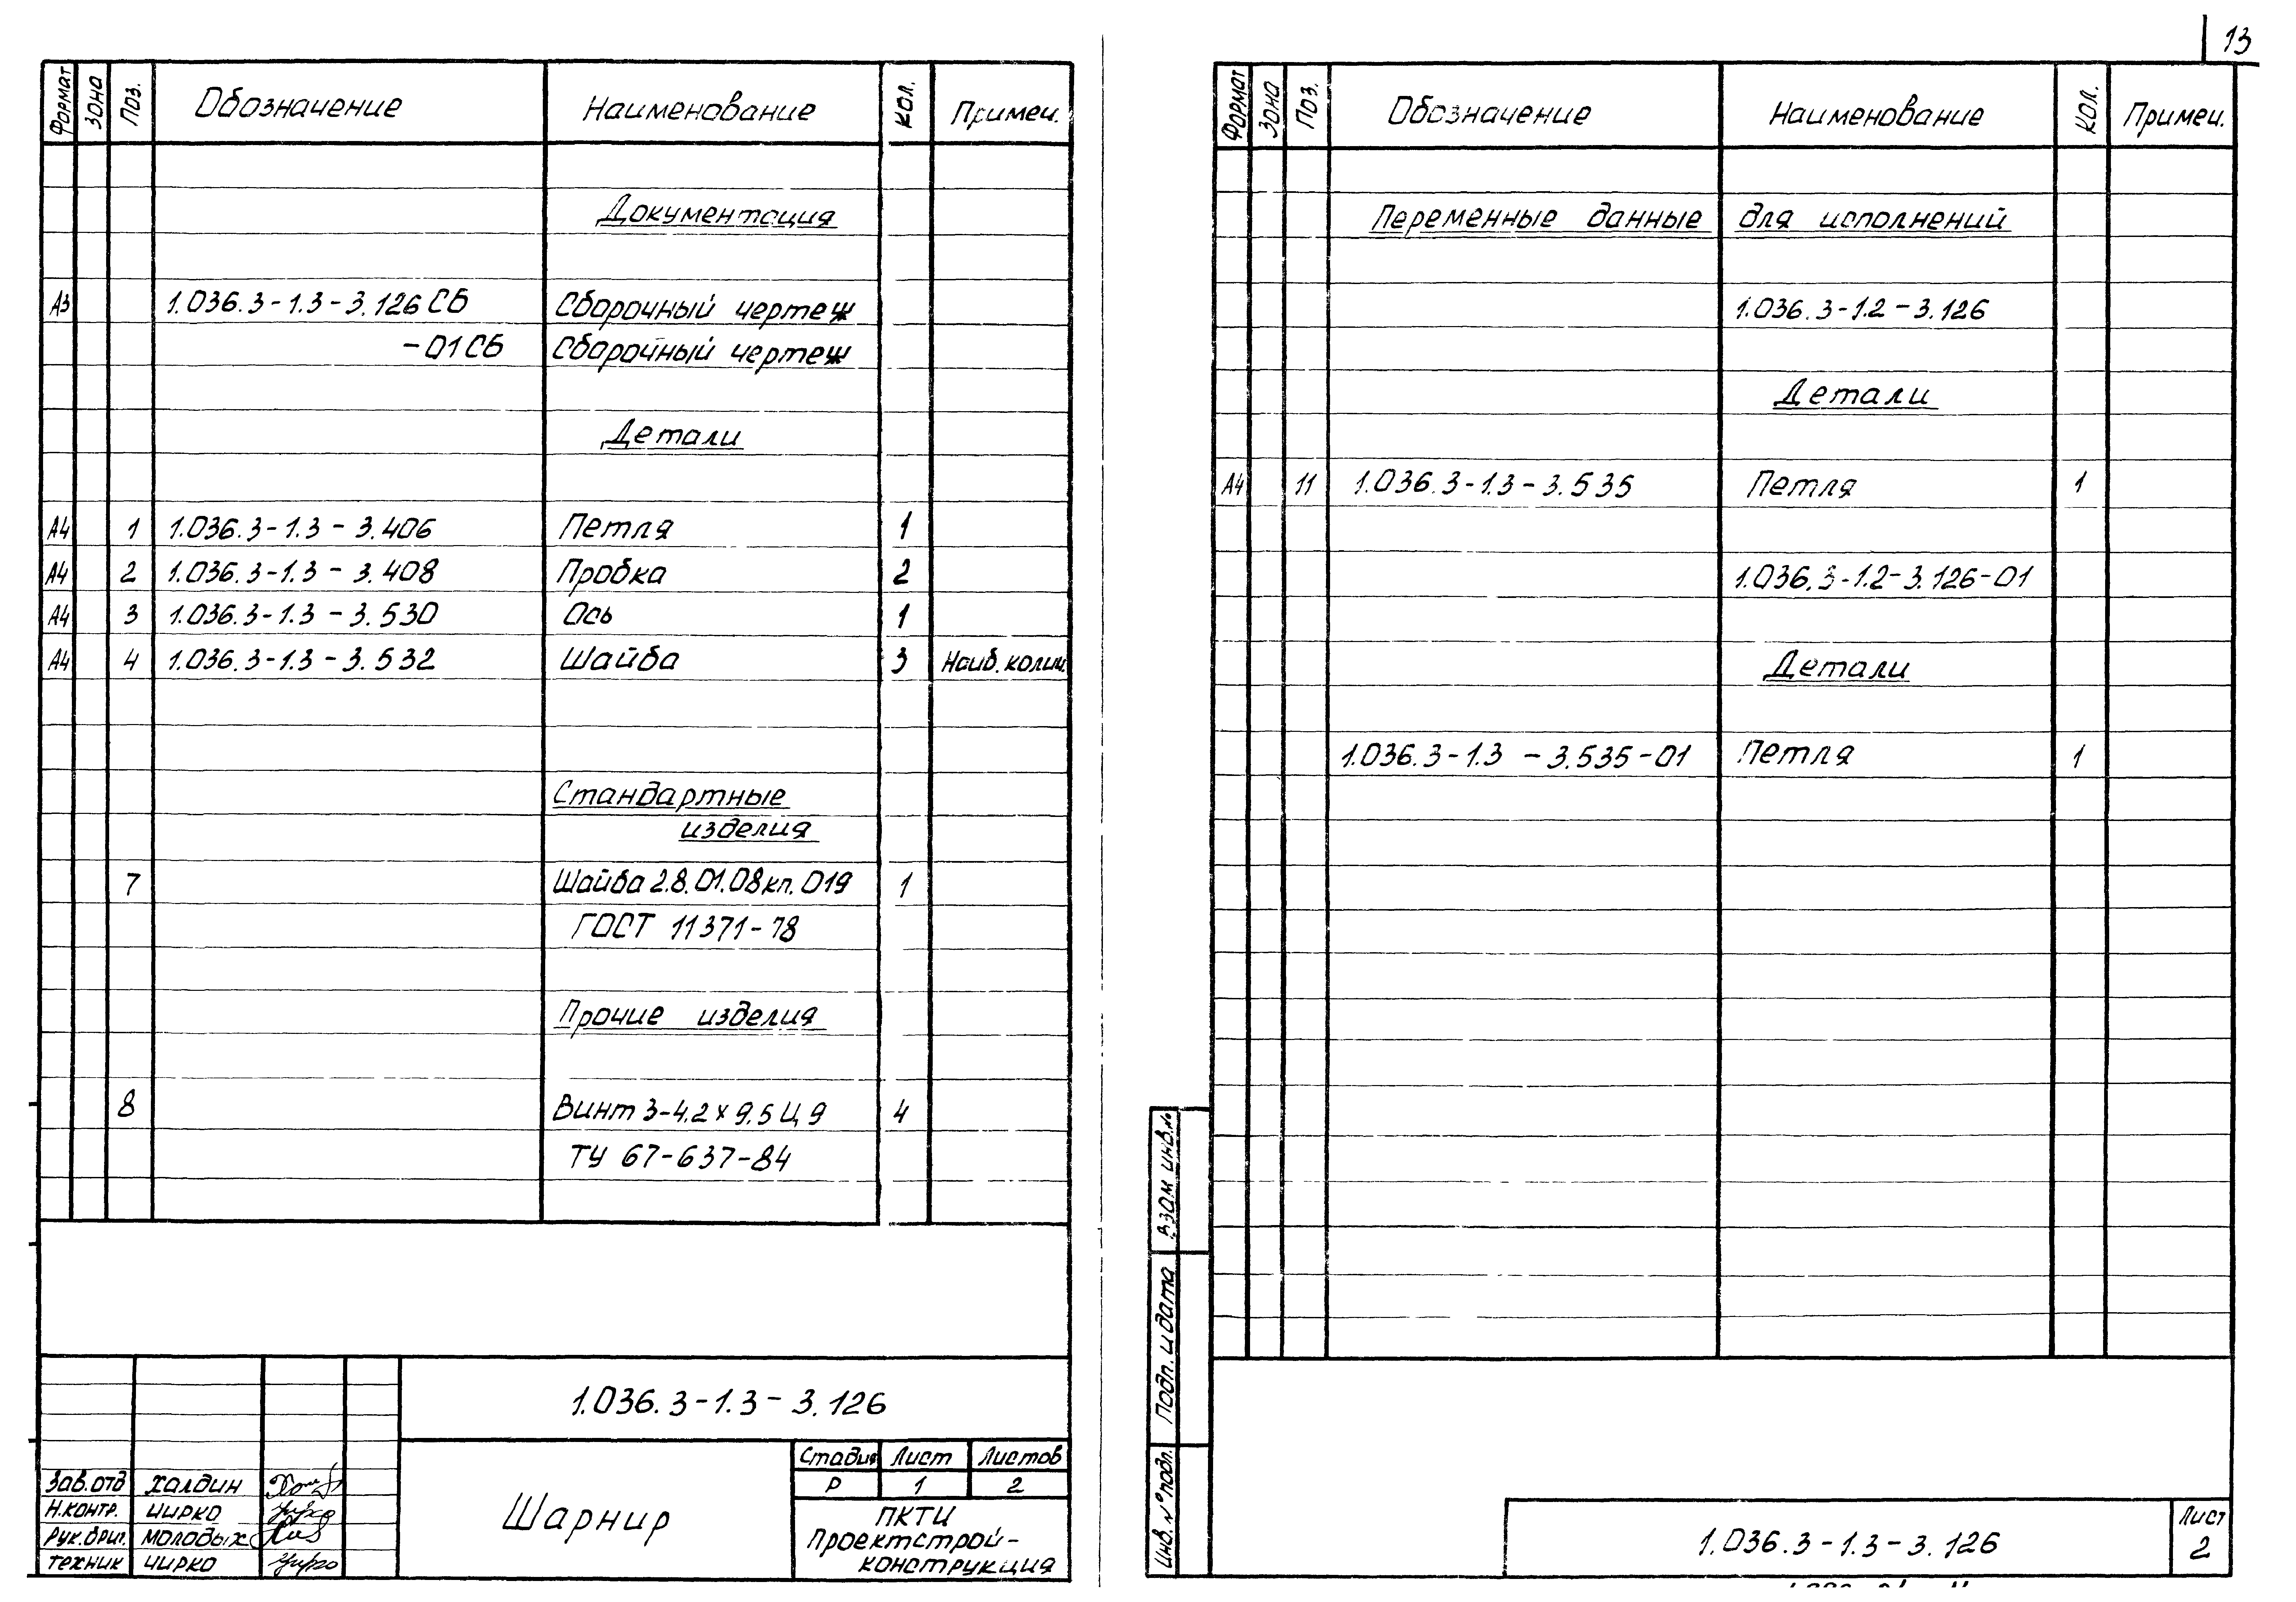 13
Формат Зона Поз. Обозначение Наименование Кол. Примеч.
Документация
А3 1.036.3-1.3-3.126 СБ Сборочный чертеж
-01 СБ Сборочный чертеж
Детали
А4 1 1.036.3-1.3-3.406 Петля 1
А4 2 1.036.3-1.3-3.408 Пробка 2
А4 3 1.036.3-1.3-3.530 Ось 1
А4 4 1.036.3-1.3-3.532 Шайба 3 Наиб. колич.
Стандартные
изделия
7 Шайба 2.8.01.08кп.019 1
ГОСТ 11371-78
Прочие изделия
8 Винт 3-4.2х9.5 Ц9 4
ТУ 67-637-84
1.036.3-1.3-3.126
Зав.отд Халдин
Н.контр. Чирко
Рук.бриг. Молодых
Техник Чирко
Шарнир
Стадия Лист Листов
Р 1 2
ПКТИ
Проектстрой-
конструкция
Формат Зона Поз. Обозначение Наименование Кол. Примеч.
Переменные данные для исполнений
1.036.3-1.2-3.126
Детали
А4 11 1.036.3-1.3-3.535 Петля 1
1.036.3-1.2-3.126-01
Детали
1.036.3-1.3-3.535-01 Петля 1
Взам инв.№
Подп. и дата
Инв. № подл.
1.036.3-1.3-3.126
Лист
2